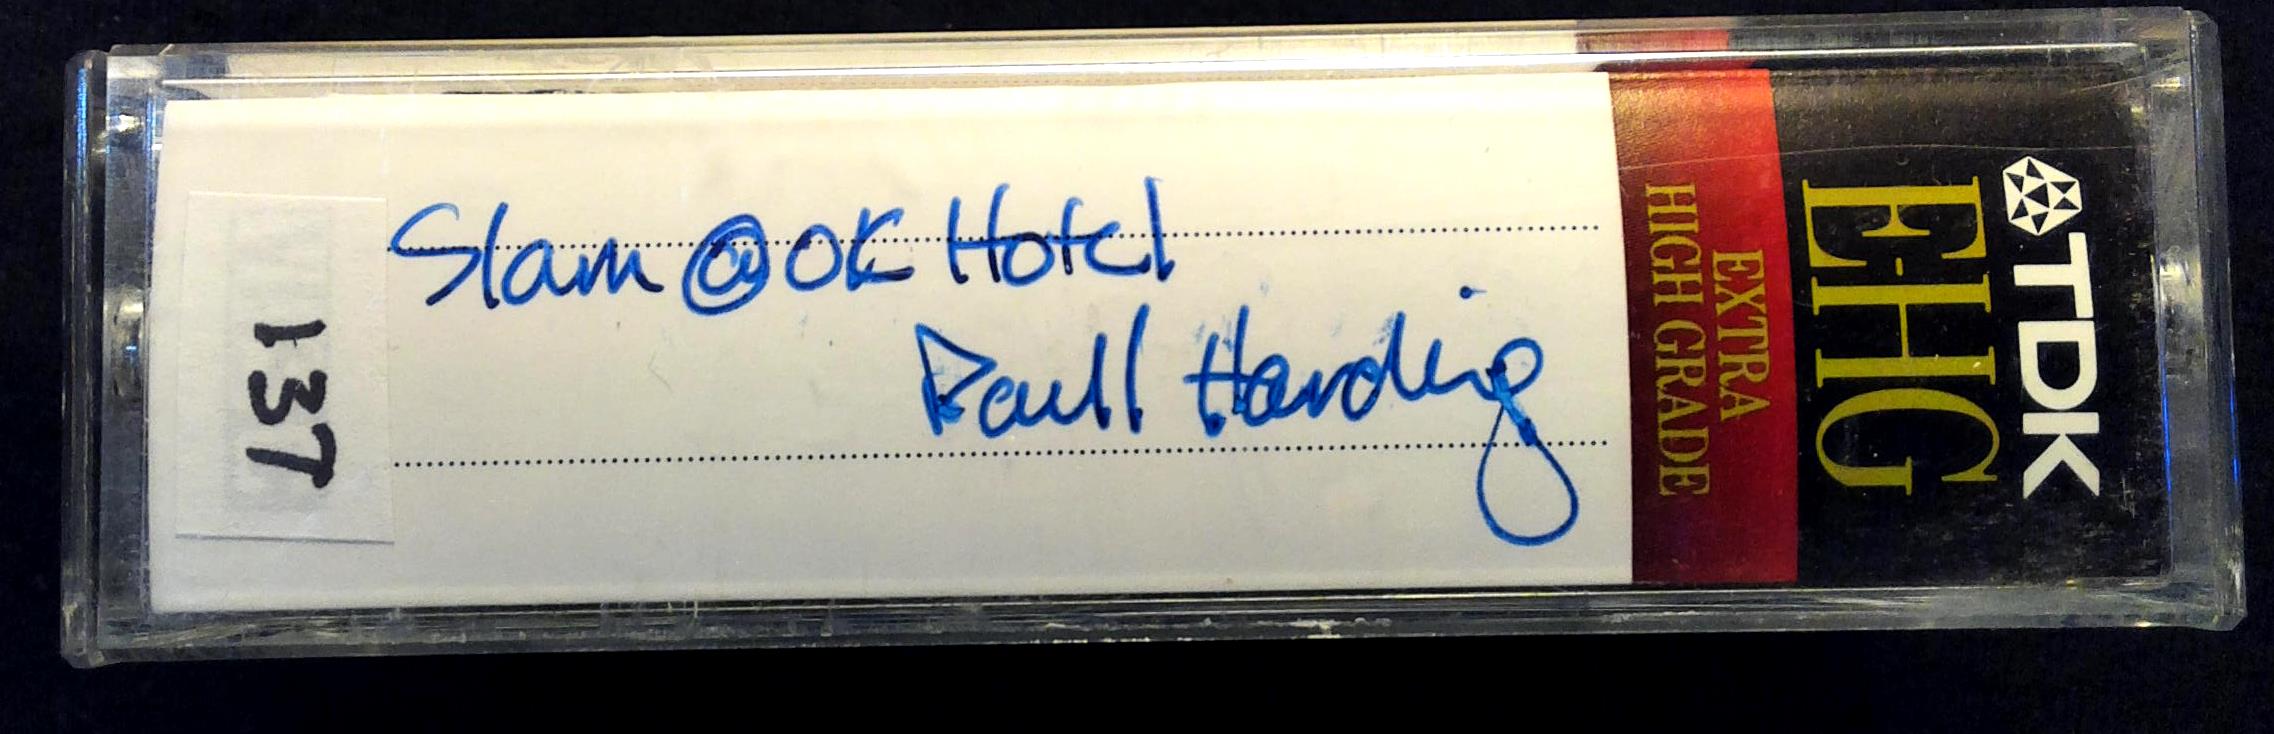 Slam @ OK Hotel
Paull Harding
137
EXTRA
HIGH GRADE
E-HG
TDK